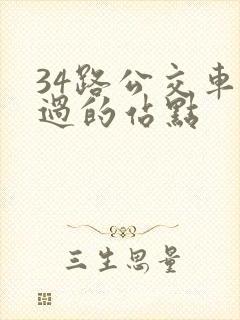 34路公交車
過的佔點
三生思量